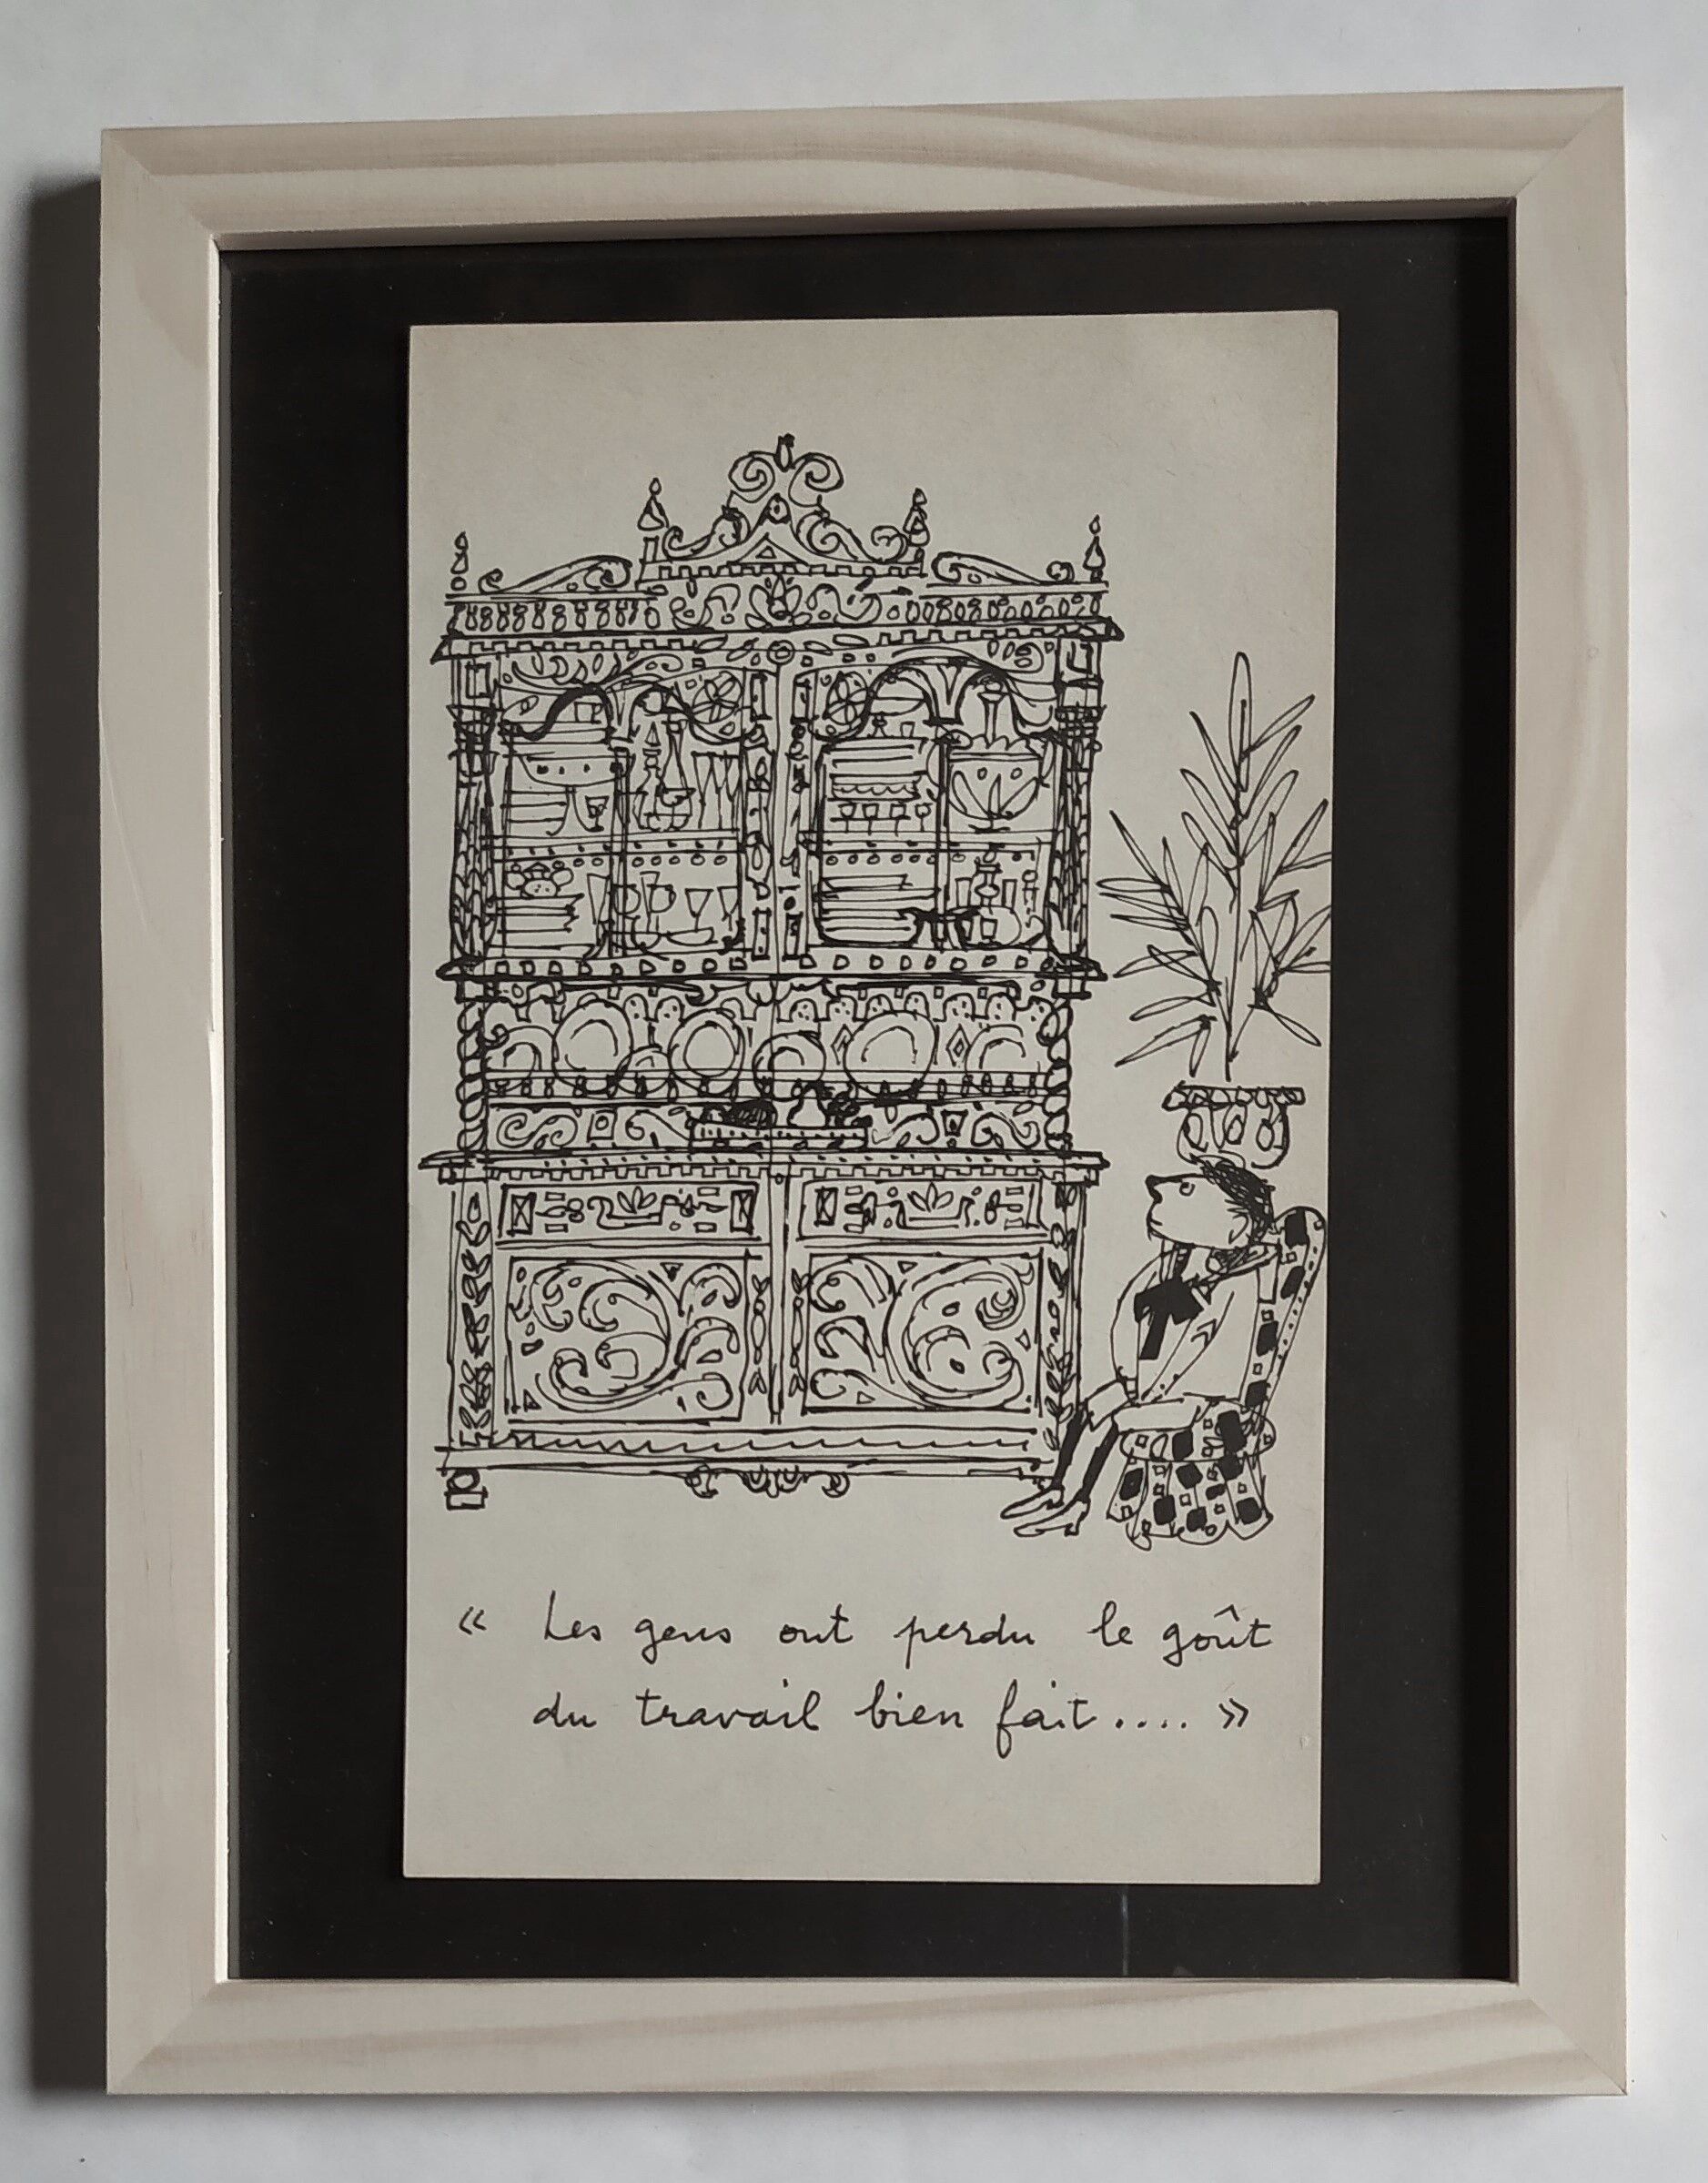 « Les gens ont perdu le goût
du travail bien fait.... »